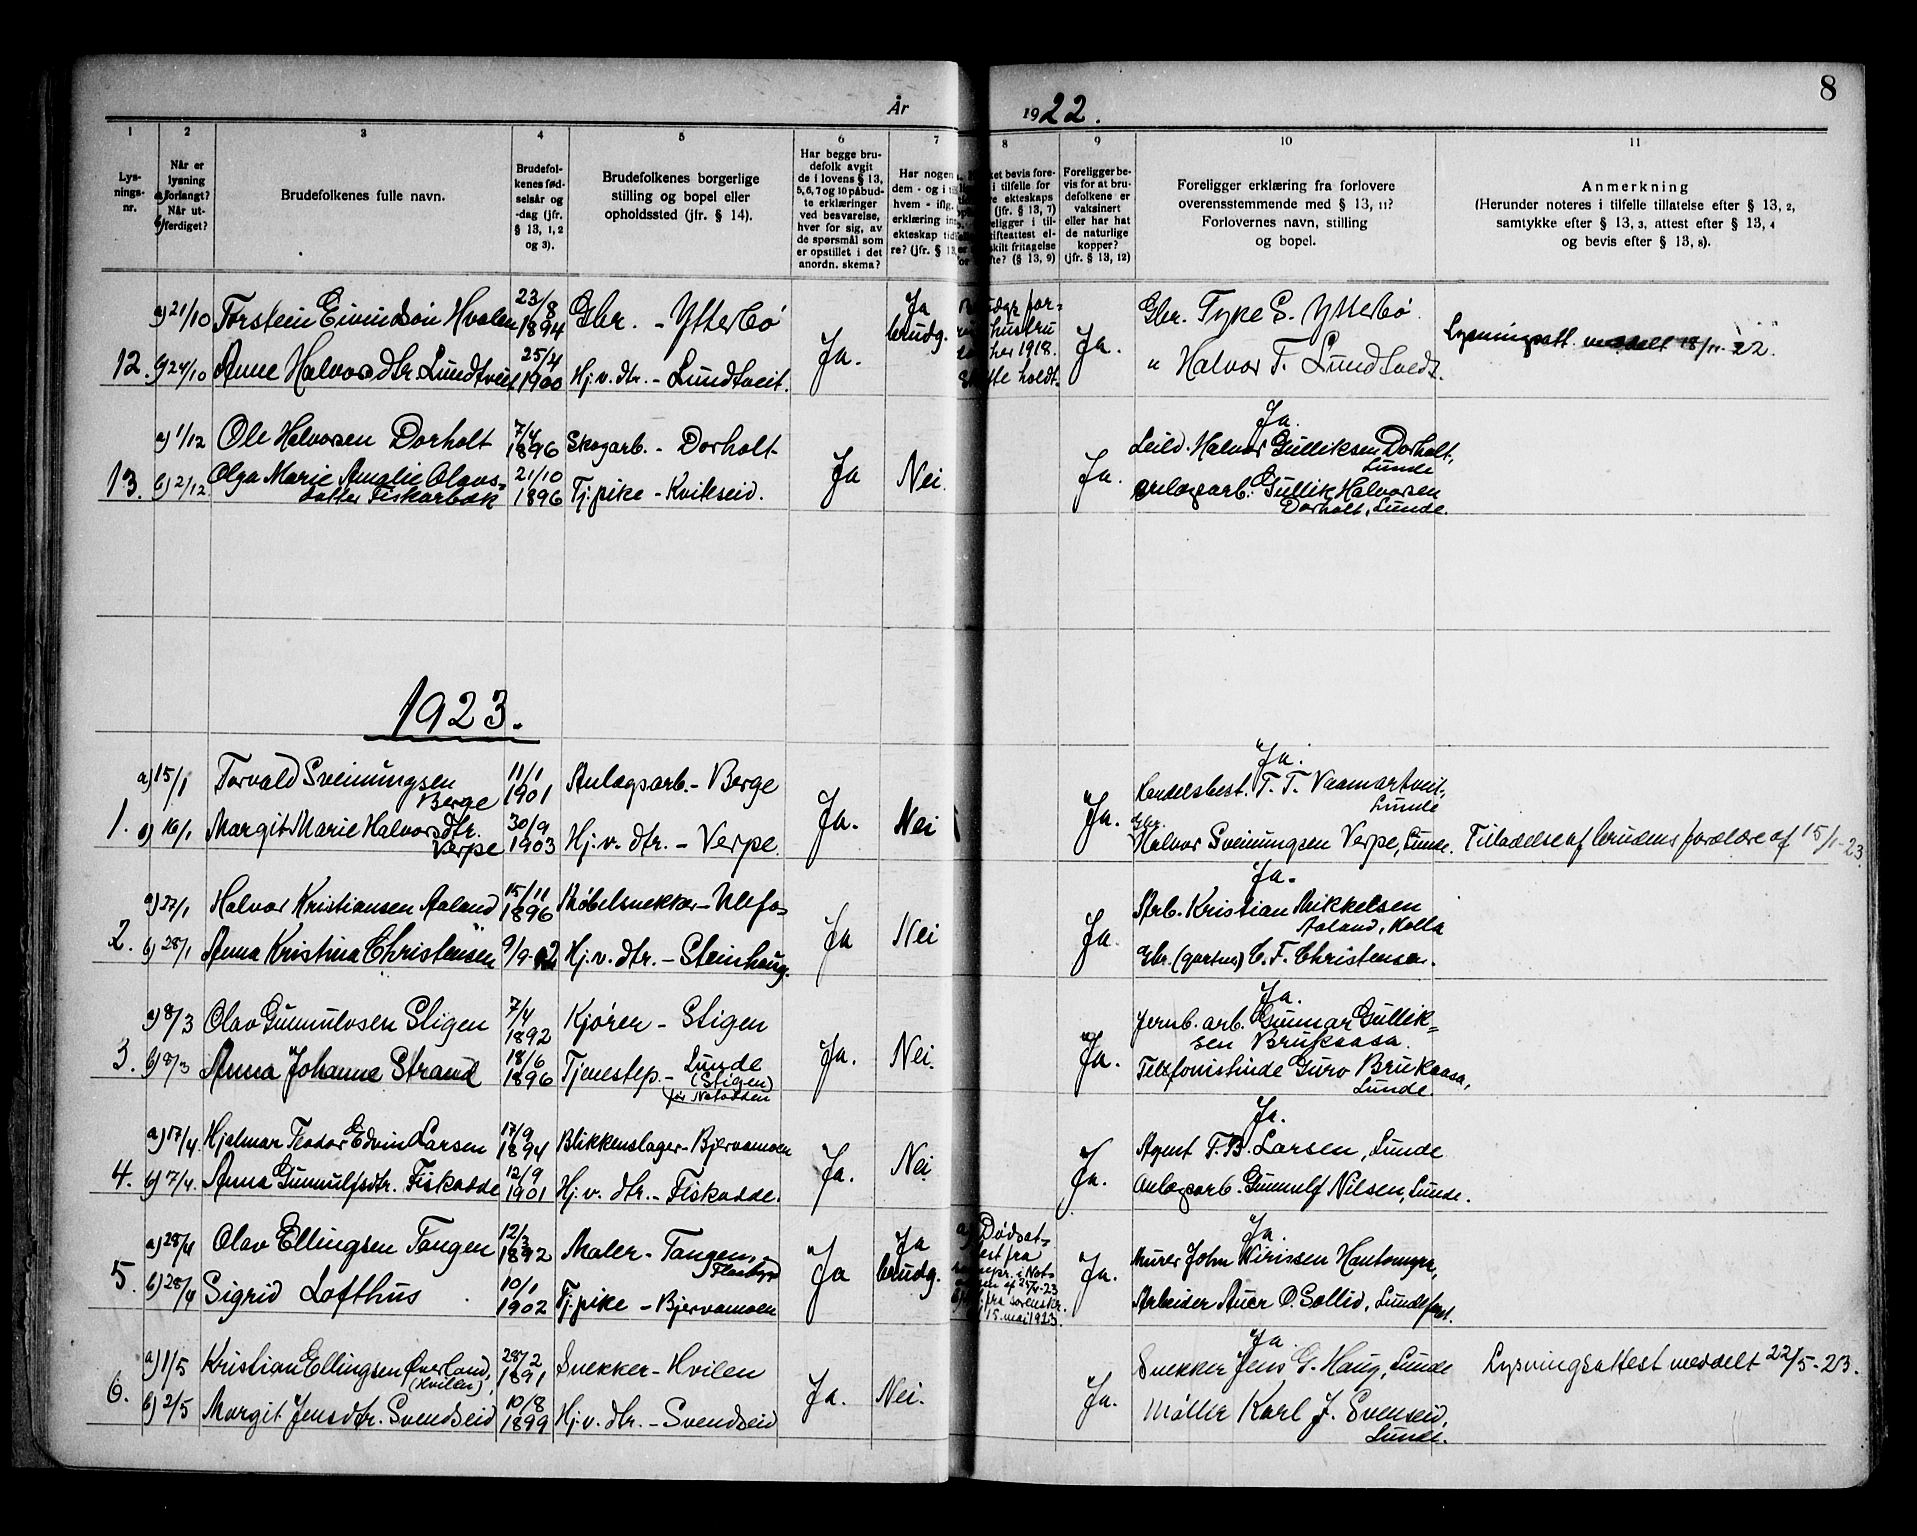 8
År 1922.
1
2
3
4
5
6
7
8
9
10
11
Lys-
nings-
nr.
Når er
lysning
a) forlangt?
Når ut-
b) ferdiget?
Brudefolkenes fulle navn.
Brudefol-
kenes fød-
selsår og
-dag (jfr.
§ 13, 1, 2
og 3).
Brudefolkenes borgerlige
stilling og bopel eller
opholdssted (jfr. § 14).
Har begge bru-
defolk avgit
de i lovens § 13,
5, 6, 7 og 10 påbud-
te erklæringer
ved besvarelse,
hver for sig, av
de spørsmål som
er opstillet i det
anordn. skema?
Har nogen
dem - og i
hvem - ifig.
erklæring
ekteskap
re? (jfr. § 13,
ket bevis fore-
i tilfelle for
re ekteskaps
(jfr. § 13, 7)
eligger i til-
ifteattest el-
skilt fritagelse
fte? (§ 13, 9)
Foreligger be-
vis for at bru-
defolkene er
vaksinert
eller har hat
de naturlige
kopper?
(jfr. § 13, 12)
Foreligger erklæring fra forlovere
overensstemmende med § 13, 11?
Forlovernes navn, stilling
og bopel.
Anmerkning
(Herunder noteres i tilfelle tillatelse efter § 13, 2,
samtykke efter § 13, 3, attest efter § 13, 4
og bevis efter § 13, 8).
12.
a) 21/10 Torstein Eivindson Hvalen 23/8 1894 Gbr. - Ytterbø
b) 24/10 Anne Halvorsdtr. Lundtveit 25/4 1900 Hj.v. dtr. - Lundtveit.
Ja.
Ja
brudg.
for-
hustru
1918.
holdt.
Ja.
Gbr. Tyke S. Ytterbø.
" Halvor T. Lundtvedt.
Lysningsatt. meddelt 18/11 22.
13.
a) 1/12 Ole Halvorsen Dorholt 7/4 1896 Skogarb. - Dorholt
b) 2/12 Olga Marie Amalie Olavs=
datter Fiskarbæk 21/10 1896 Tj.pike - Kvikseid.
Ja
Nei.
Ja.
Ja.
Leild. Halvor Gulliksen Dorholt,
Lunde
Anlægsarb. Gullik Halvorsen
Dorholt, Lunde.
1923.
1.
a) 15/1 Torvald Sveinungsen
Berge 11/1 1901 Anlægsarb. - Berge
b) 16/1 Margit Marie Halvorsdtr.
Verpe 30/9 1903 Hj.v. dtr. - Verpe.
Ja.
Nei
Ja.
Ja.
Handelsbest. T. T. Vaamartveit,
Lunde
Gbr.
Halvor Sveinungsen Verpe, Lunde.
Tilladelse af brudens forældre af 15/1-23
2.
a) 27/1 Halvor Kristiansen Aaland 15/11 1896 Møbelsnekker - Ulefo=
b) 28/1 Anna Kristina Christensen 9/9-02 Hj.v. dtr. - Steinhaug.
Ja
Nei
Ja.
Ja.
Arb. Kristian Mikkelsen
Aaland, Holla
Gbr. (gartner) C. F. Christensen.
3.
a) 8/3 Olav Gunnulvsen Stigen 7/4 1892 Kjører - Stigen
b) 8/3 Anna Johanne Strand 18/6 1896 Tjenestep. - Lunde
(Stigen)
før Notodden
Ja.
Nei.
Ja.
Ja.
Jernb. arb. Gunnar Gullik=
sen Brukaasa.
Telefonistinde Guro Brukaasa,
Lunde.
4.
a) 17/4. Hjalmar Teodor Edvin Larsen 17/9 1894 Blikkenslager - Bjervamoen
b) 17/4. Anna Gunnulfsdtr. Fiskodde 12/9 1901 Hj.v. dtr. - Fiskodde.
Ja.
Nei.
Ja.
Ja.
Agent T. B. Larsen, Lunde
Anlægsarb. Gunnulf Nilsen, Lunde.
5.
a) 28/4 Olav Ellingsen Tangen 12/3 1892 Maler - Tangen,
b) 28/4 Sigrid Lofthus 10/1 1902 Tj.pike - Bjervamoen
Ja
Ja
brudg.
a) Dødsat=
test fra
i Not=
fra sorenskr.
15. mai 1923.
Ja.
Ja.
Murer John Nirissen
Arbeider O. Sollid, Lunde
6.
a) 1/5 Kristian Ellingsen Øverland,
(Hvilen), 28/2 1891 Snekker - Hvilen
b) 2/5 Margit Jensdtr. Svendseid 10/8 1899 Hj.v. dtr. - Svendseid
Ja.
Nei.
Ja.
Ja.
Snekker Jens G. Haug, Lunde
Møller Karl J. Svenseid,
Lunde.
Lysningsattest meddelt 22/5-23.